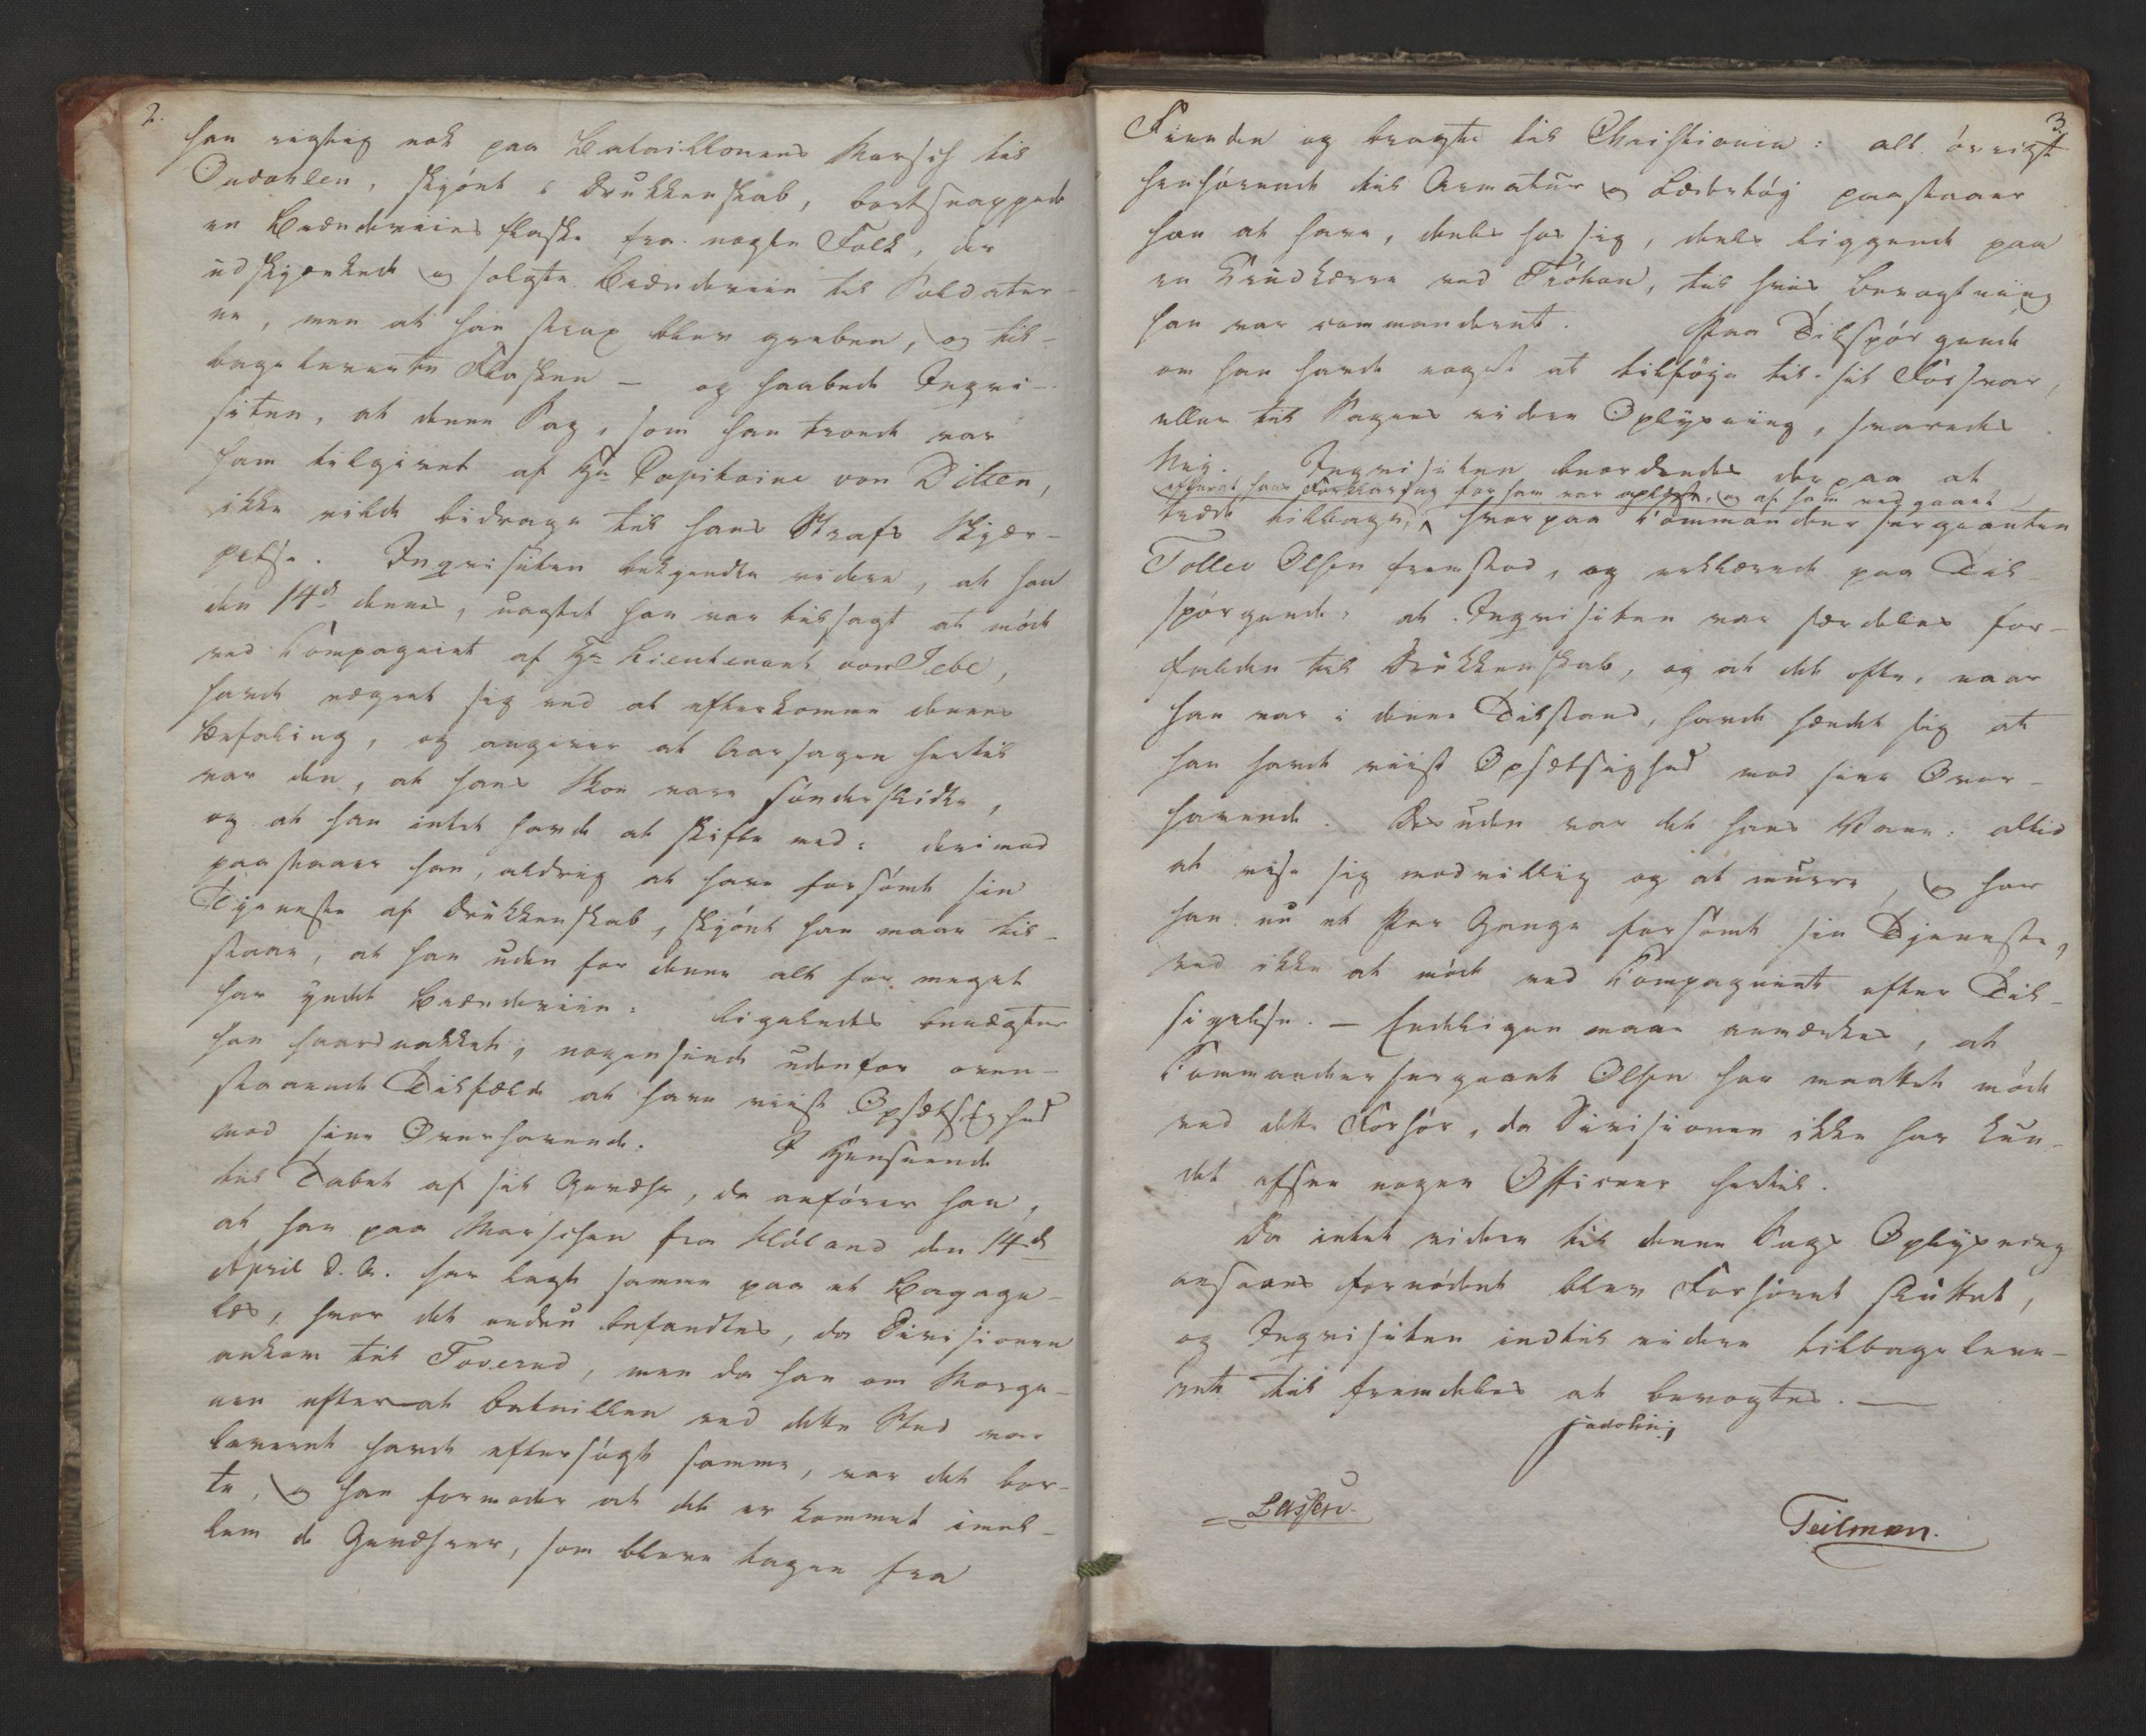 2.
han rigtig nok paa Bataillonens Marsch til
Oudahlen, skjönt i Drukkenskab, bortsnappede
en Brændeviins flaske fra nogle Folk, der
udskjænkede og solgte Brændeviin til Soldater-
ne, men at han strax blev greben, og til-
bageleverte Flasken – og haabede Inqvi-
siten, at denne Sag, som han troede var
ham tilgivet af Hr Capitaine von Ditten,
ikke vilde bidrage til hans Strafs Skjær-
pelse. Inqvisiten bekjendte videre, at han
den 14d dennes, uagtet han var tilsagt at möde
ved Compagniet af Hr Lieutenant von Jebe,
havde vægret sig ved at efterkomme dennes
Befaling, og angiver at Aarsagen hertil
var den, at hans Skoe vare sönderslidte,
og at han intet havde at skifte med: derimod
paastaaer han, aldrig at have forsömt sin
Tjeneste af Drukkenskab, skjönt han maae til-
staae, at han uden for denne alt for meget
har yndet Brændeviin: ligeledes benægter
han haardnakket, nogensinde udenfor oven-
staaende Tilfælde at have viist Opsætsighed
mod sine Overhavende. I Henseende
til Tabet af sit Geværh, da anförer han,
at han paa Marschen fra Höland den 14d
April d. A. har lagt samme paa et Bagage-
læs, hvor det endnu befandtes, da Divisionen
ankom til Toverud, men da han om Morge-
nen efter at Batillen ved dette Sted var
leveret havde eftersögt samme, var det bor-
te, og han formoder at det er kommet imel-
lem de Geværher, som bleve tagne fra
3.
Fienden og bragte til Christiania: alt övrigt
henhörende til Armatur og Lædertöy paastaaer
han at have, deels hos sig, deels liggende paa
en Krudkærre ved Fröhou, til hvis Bevogtning
han var commanderet. Paa Tilspörgende
om han havde noget at tilföye til sit Forsvar,
eller til Sagens videre Oplysning, svaredes
Nej. Inqvisiten beordredes derpaa at
efterat hans Forklaring for ham var oplæst, og af ham vedgaaet
træde tilbage, hvorpaa Commandeersergeanten
Tollev Olsen fremstod, og erklærede paa Til-
spörgende: at Inqvisiten var særdeles for-
falden til Drukkenskab, og at det ofte, naar
han var i denne Tilstand, havde hændet sig at
han havde viist Opsætsighed mod sine Over-
havende. Desuden var det hans Vane: altid
at vise sig modvillig og at murre, og har
han nu et Par Gange forsömt sin Tjeneste,
ved ikke at möde ved Compagniet efter Til-
sigelse. – Endeligen maae anmærkes, at
Commandeersergeant Olsen har maattet möde
ved dette Forhör, da Divisionen ikke har kun-
det afsee nogen Officeer hertil.
Da intet videre til denne Sags Oplysning
ansaaes fornödent blev Forhöret sluttet,
og Inqvisiten indtil videre tilbageleve-
ret til fremdeles at bevogtes. —
Lassen.
Teilman.